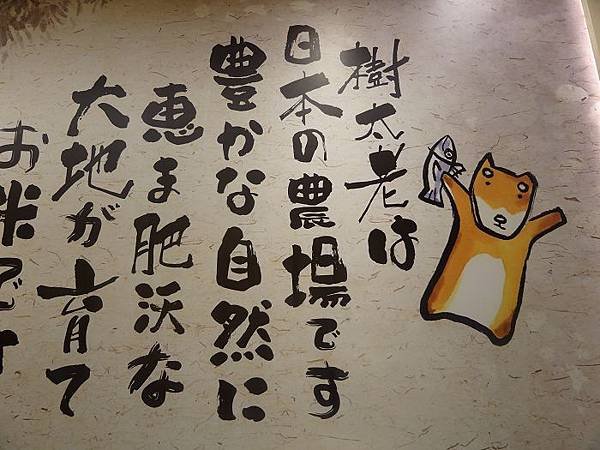 樹太老は
日本の農場です
豊かな自然に
恵ま肥沃な
大地が育て
お米